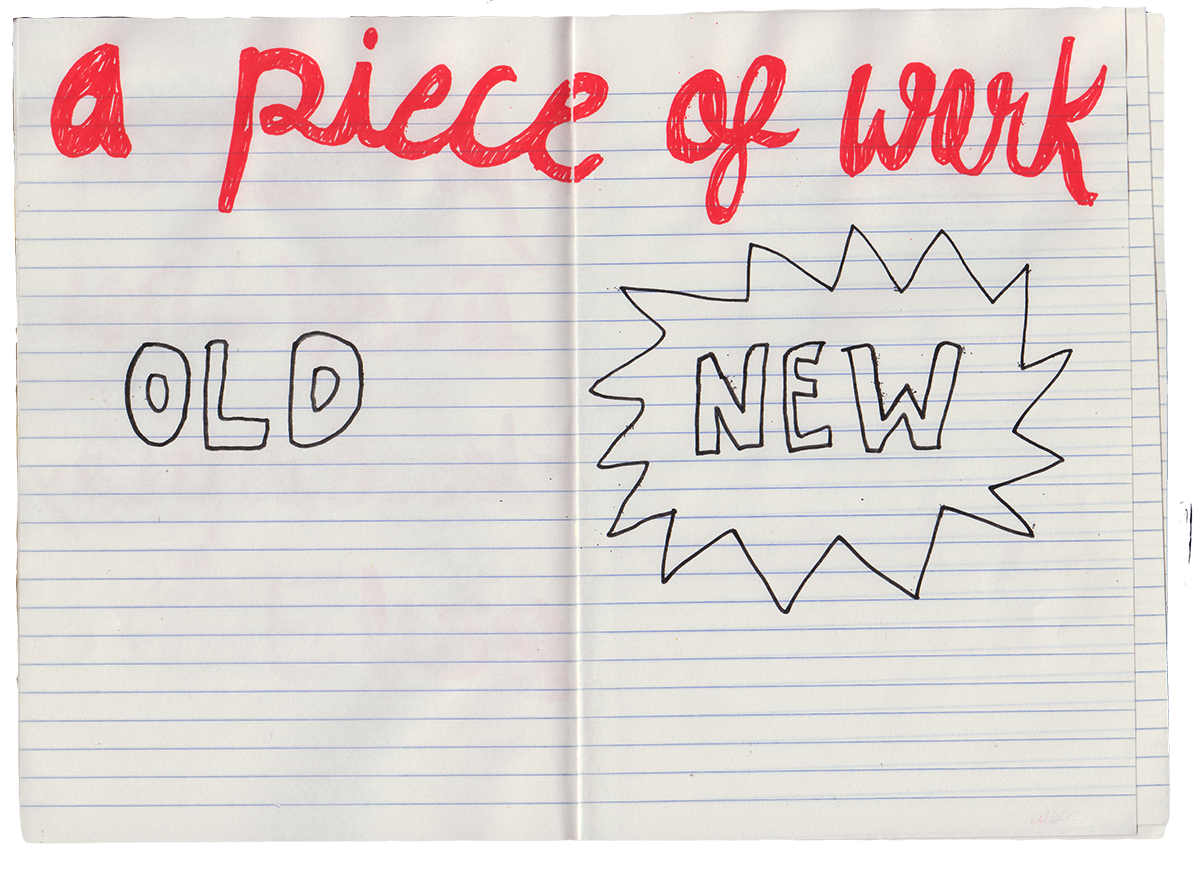 a piece of work
OLD
NEW